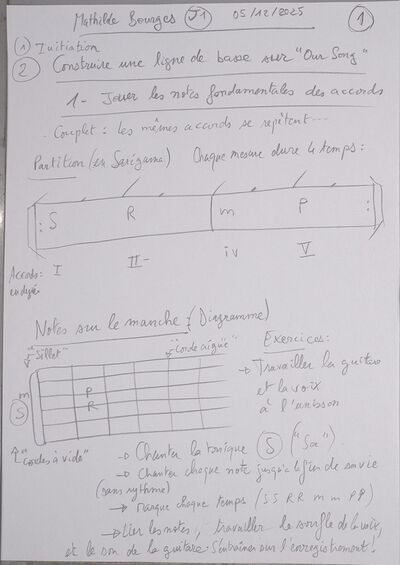 Mathilde Bourges J1 05/12/2025 1
1 Initiation
2 Construire une ligne de basse sur "Our Song"
1- Jouer les notes fondamentales des accords
- Couplet : les mêmes accords se répètent ...
Partition (en Sarigama) Chaque mesure dure 4 temps :
: S R m P :
Accords : I II- IV V
en degré
Notes sur le manche : (Diagramme)
"Sillet" "corde aigüe"
Exercices :
→ Travailler la guitare
et la voix
à l'unisson
m P
S R
"cordes à vide"
→ Chanter la tonique S ("Sa")
→ Chanter chaque note jusqu'à la fin de sa vie
(sans rythme)
→ Marque chaque temps (S S R R m m P P)
→ Lier les notes, travailler le souffle de la voix,
et le son de la guitare. S'entraîner sur l'enregistrement !